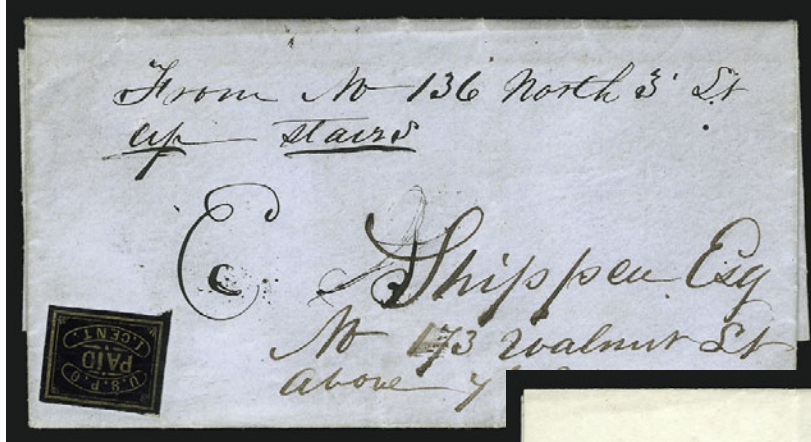 From No 136 North 3 St
up stairs
E. Shippen Esq
No 173 Walnut St
above
U.S.P.O
PAID
1.CENT.